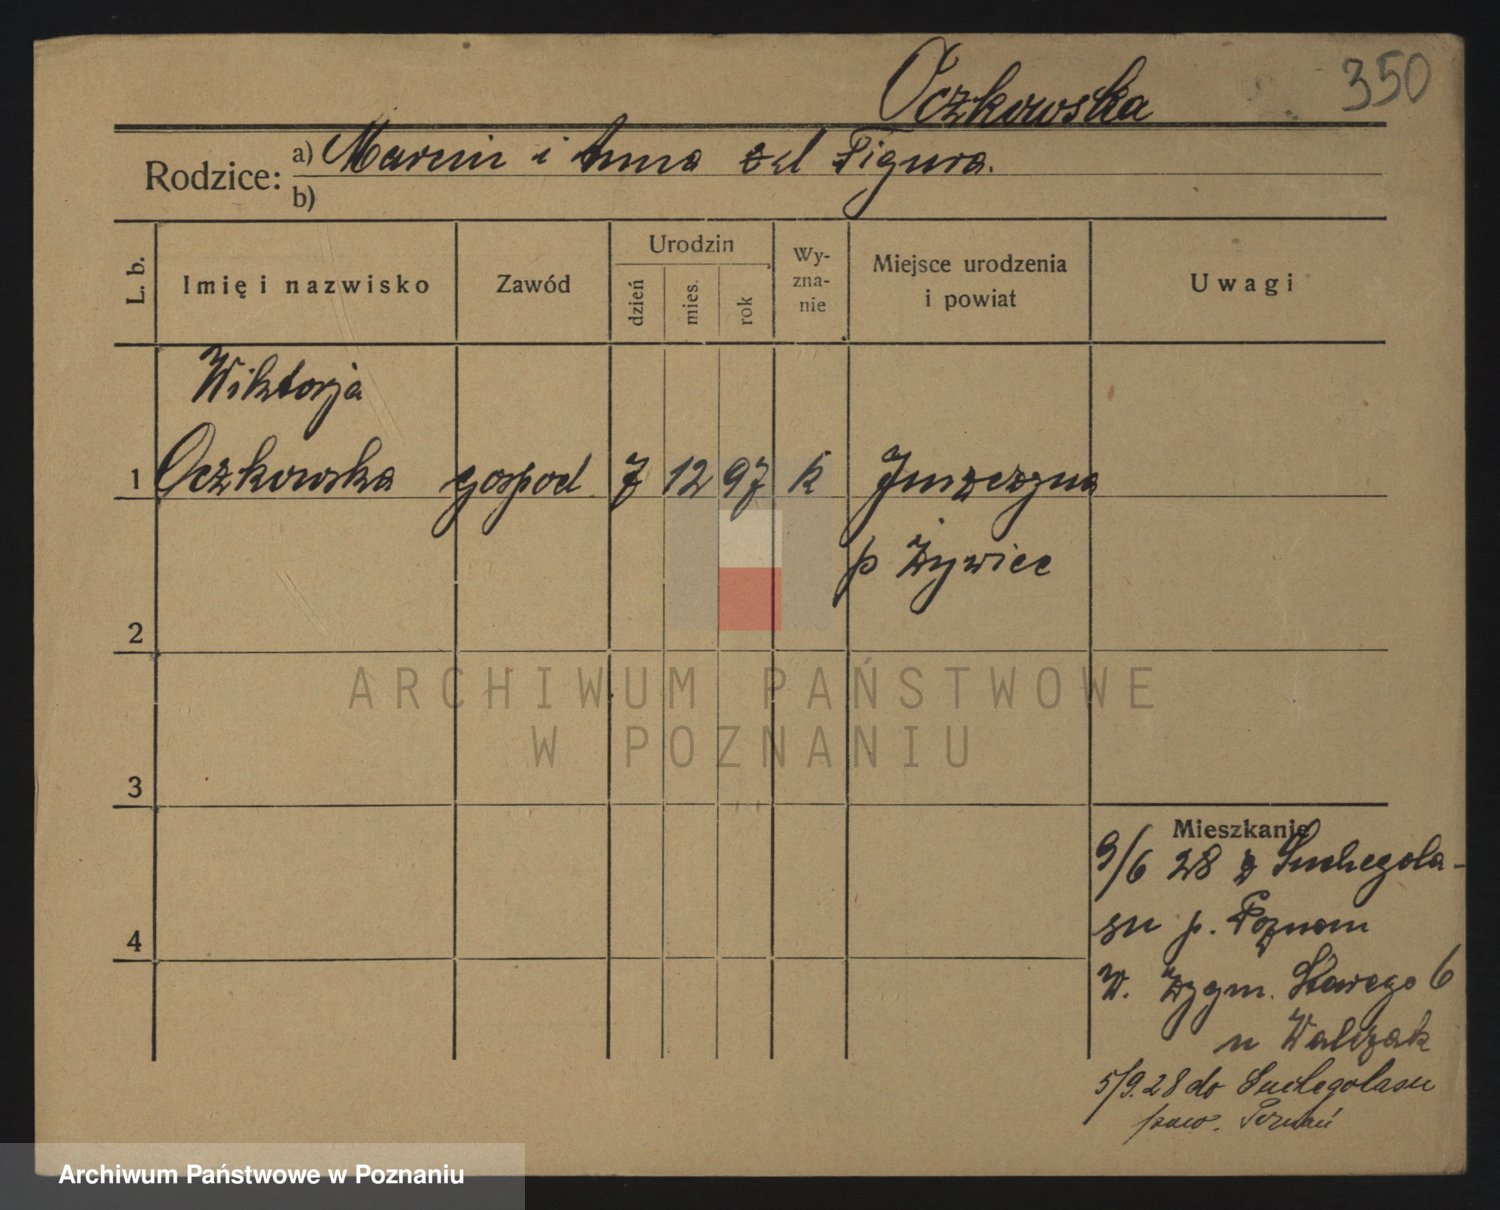 Oczkowska
350
Rodzice: a) Marcin i Anna zd Figura.
b)
L. b.
Imię i nazwisko
Zawód
Urodzin
dzień
mies.
rok
Wy-
zna-
nie
Miejsce urodzenia
i powiat
Uwagi
Wiktorja
1 Oczkowska gospod 7 12 97 k Juszczyna
p Żywiec
2
ARCHIWUM PAŃSTWOWE
W POZNANIU
3
Mieszkanie
9/6 28 z Suchegola-
su p. Poznan
W. Zygm. Starego 6
u Walczak
5/9.28 do Suchegolasu
pow. Poznań
4
Archiwum Państwowe w Poznaniu